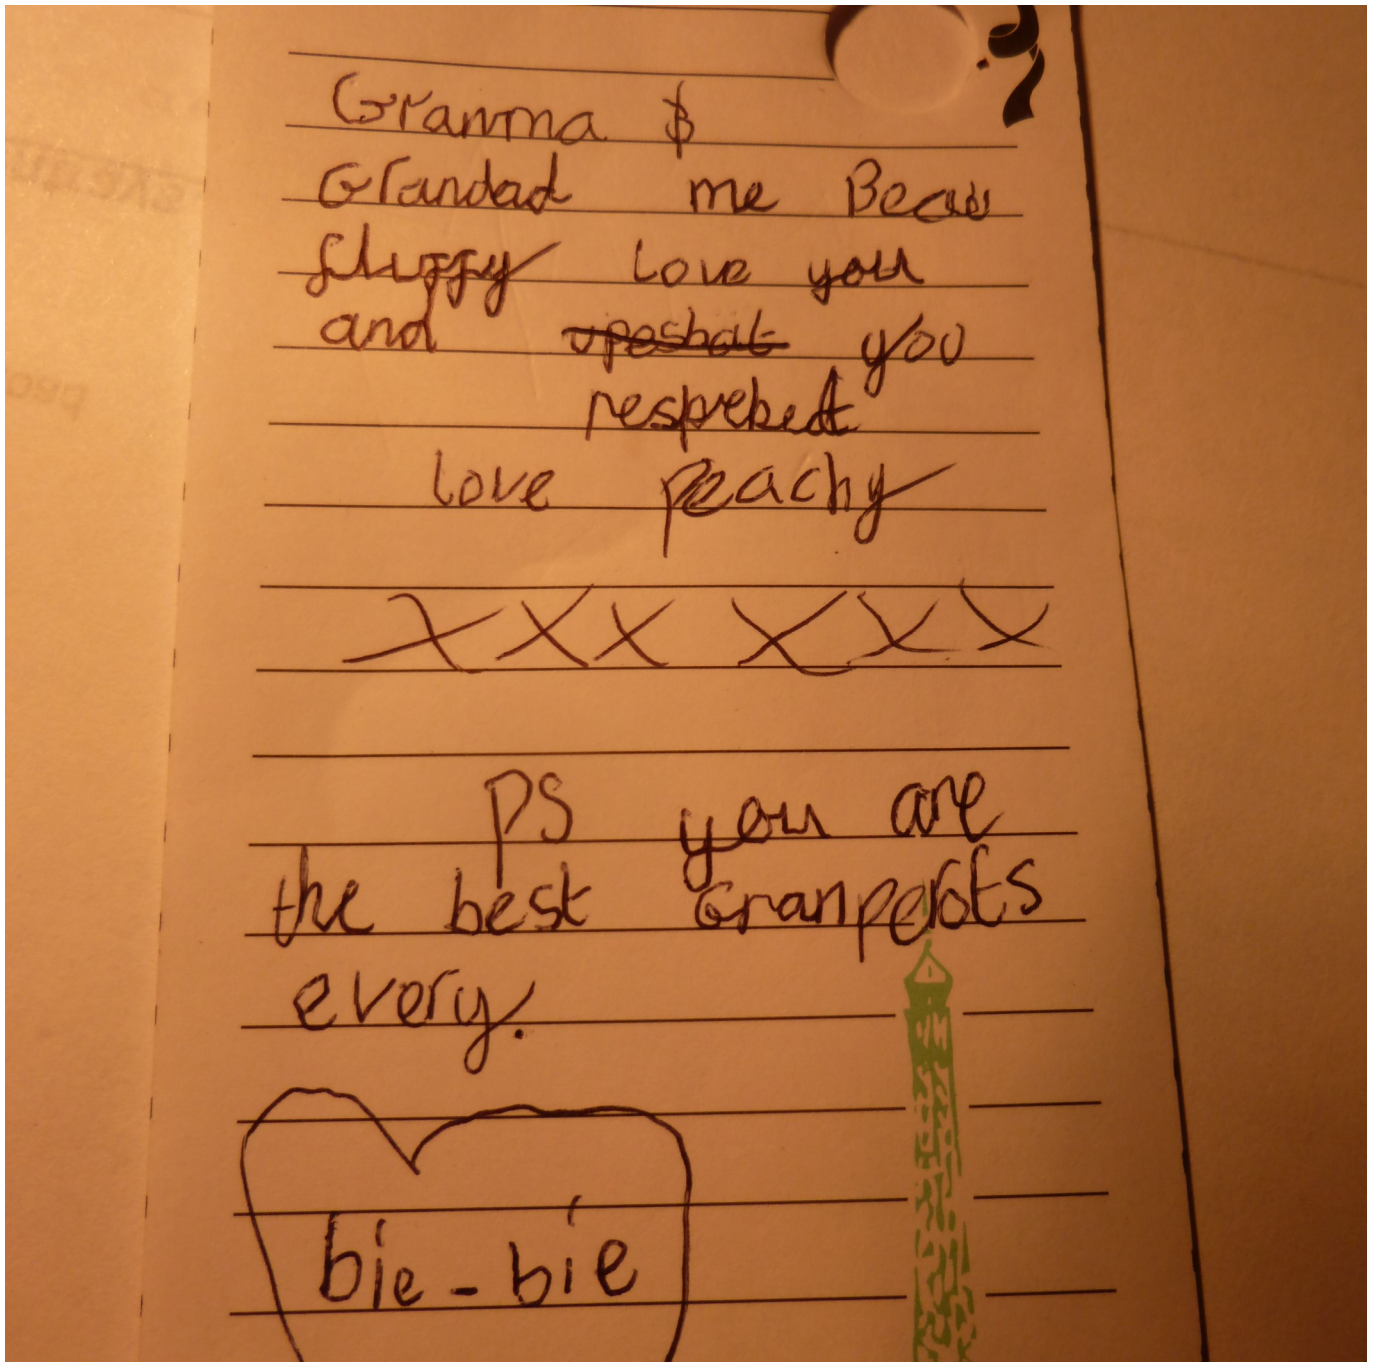 Granma &
Grandad me Beau
fluffy Love you
and you
respebedt
love peachy
xxx xxx
PS you are
the best Granperots
every.
bie-bie